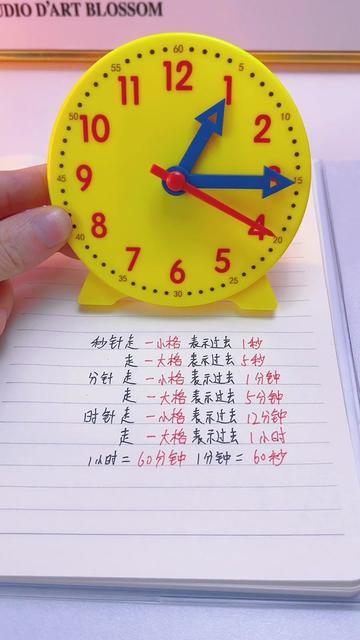 UDIO D'ART BLOSSOM
60
12
11
1
50
10
10
2
45
9
15
8
4
40
20
7
5
6
35
25
30
秒针走 一小格 表示过去 1秒
走 一大格 表示过去 5秒
分针 走 一小格 表示过去 1分钟
走 一大格 表示过去 5分钟
时针 走 一小格 表示过去 12分钟
走 一大格 表示过去 1小时
1小时 = 60分钟 1分钟 = 60秒